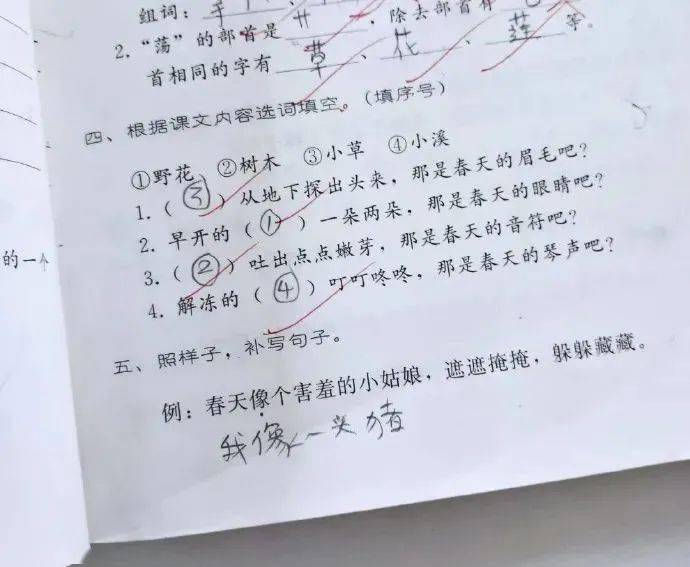 组词：
2.“荡”的部首是 艹 ，除去部首有
首相同的字有 草 、 花 、 莲 等。
四、根据课文内容选词填空。（填序号）
①野花 ②树木 ③小草 ④小溪
1.（ ③ ）从地下探出头来，那是春天的眉毛吧？
2. 早开的（ ① ）一朵两朵，那是春天的眼睛吧？
3.（ ② ）吐出点点嫩芽，那是春天的音符吧？
4. 解冻的（ ④ ）叮叮咚咚，那是春天的琴声吧？
的一个
五、照样子，补写句子。
例：春天像个害羞的小姑娘，遮遮掩掩，躲躲藏藏。
我像一头猪